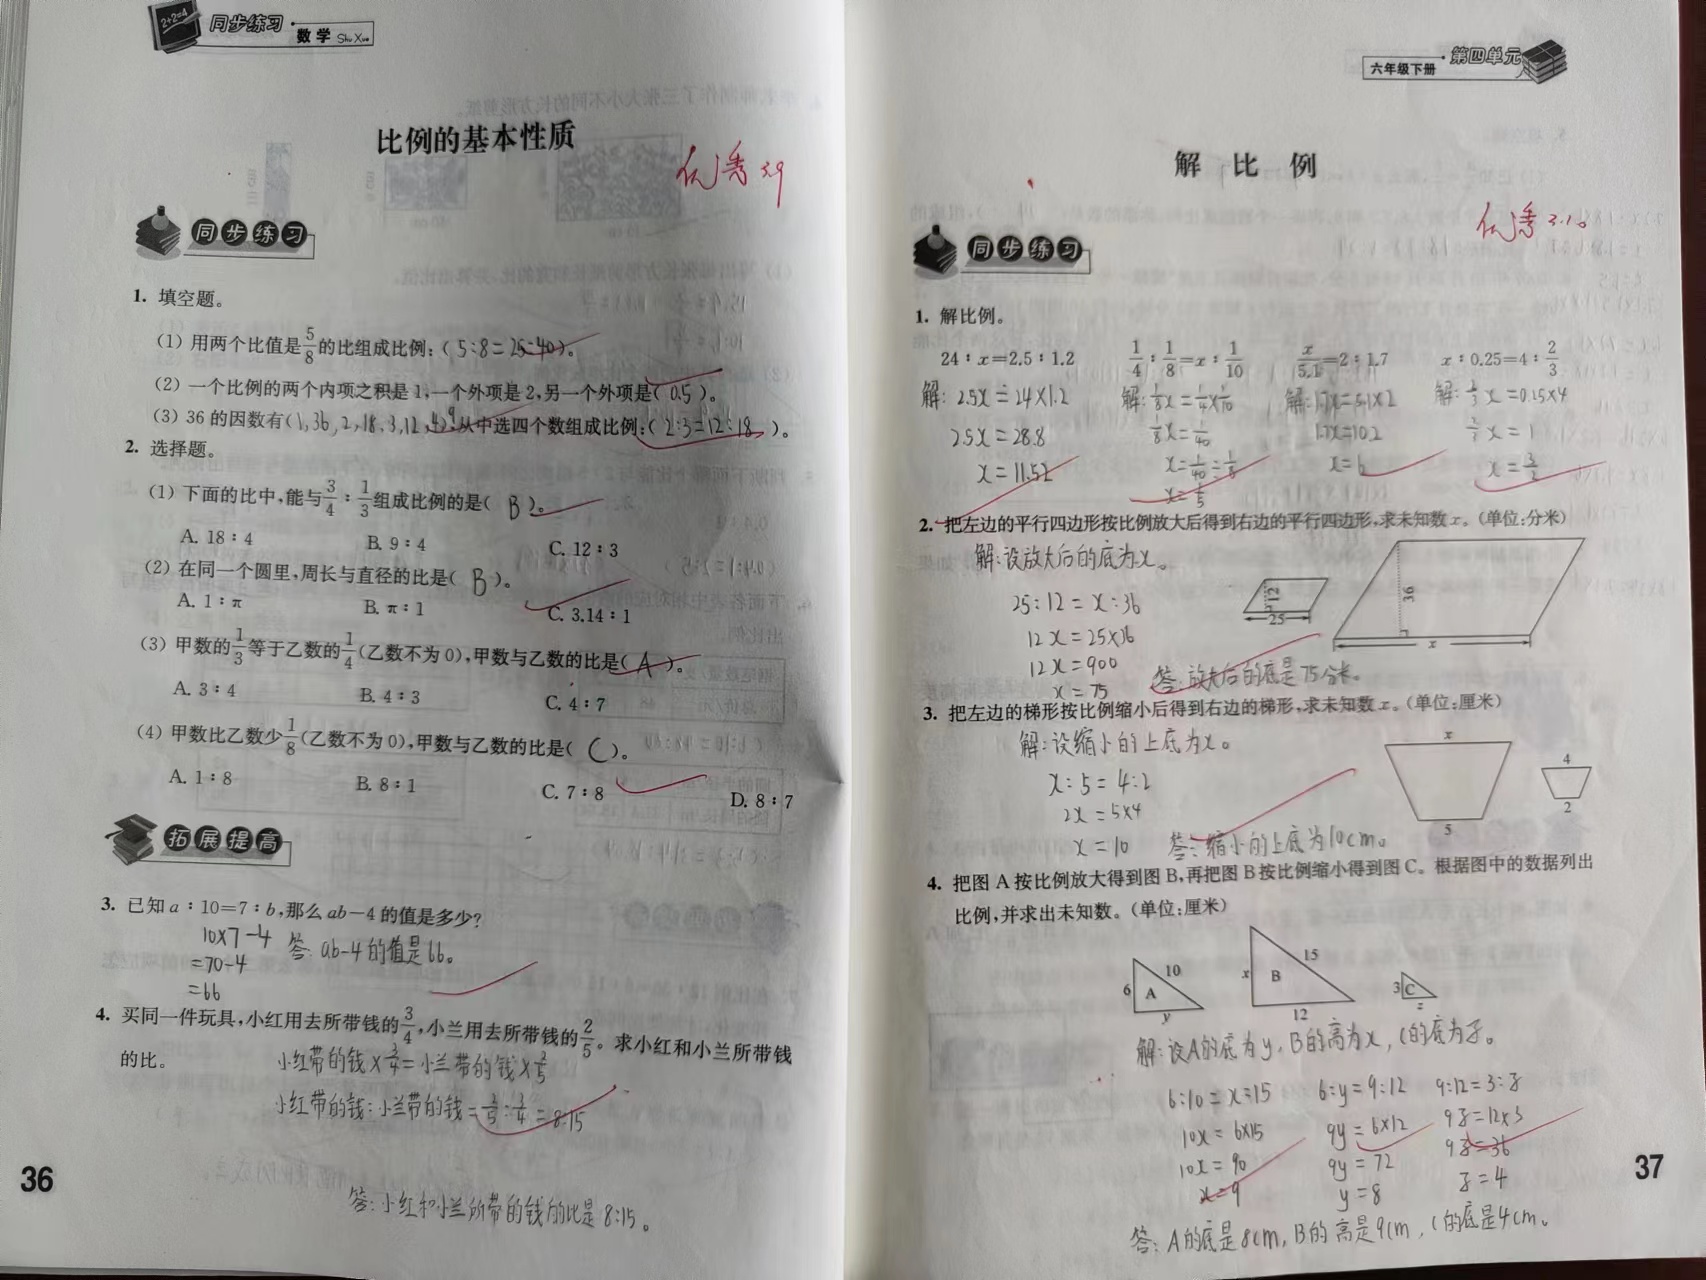 同步练习
数学 Shu Xue
比例的基本性质
优秀 3.9
同步练习
1. 填空题。
(1) 用两个比值是5/8的比组成比例:( 5:8=25:40 )。
(2) 一个比例的两个内项之积是1,一个外项是2,另一个外项是( 0.5 )。
(3) 36的因数有(1,36,2,18,3,12,4,9),从中选四个数组成比例:( 2:3=12:18 )。
2. 选择题。
(1) 下面的比中,能与3/4:1/3组成比例的是( B )。
A. 18:4 B. 9:4 C. 12:3
(2) 在同一个圆里,周长与直径的比是( B )。
A. 1:π B. π:1 C. 3.14:1
(3) 甲数的1/3等于乙数的1/4(乙数不为0),甲数与乙数的比是( A )。
A. 3:4 B. 4:3 C. 4:7
(4) 甲数比乙数少1/8(乙数不为0),甲数与乙数的比是( C )。
A. 1:8 B. 8:1 C. 7:8 D. 8:7
拓展提高
3. 已知a:10=7:b,那么ab-4的值是多少?
10×7-4 答:ab-4的值是66。
=70-4
=66
4. 买同一件玩具,小红用去所带钱的3/4,小兰用去所带钱的2/5。求小红和小兰所带钱
的比。
小红带的钱×3/4=小兰带的钱×2/5
小红带的钱:小兰带的钱=2/5:3/4=8:15
答:小红和小兰所带的钱的比是8:15。
36
六年级下册 第四单元
解比例
优秀 3.10
同步练习
1. 解比例。
24:x=2.5:1.2 1/4:1/8=x:1/10 x/5.1=2:1.7 x:0.25=4:2/3
解:2.5x=24×1.2 解:1/8x=1/4×1/10 解:1.7x=5.1×2 解:2/3x=0.25×4
2.5x=28.8 1/8x=1/40 1.7x=10.2 2/3x=1
x=11.52 x=1/40÷1/8 x=6 x=3/2
x=1/5
2. 把左边的平行四边形按比例放大后得到右边的平行四边形,求未知数x。(单位:分米)
解:设放大后的底为x。
12
25
36
x
25:12=x:36
12x=25×36
12x=900
x=75 答:放大后的底是75分米。
3. 把左边的梯形按比例缩小后得到右边的梯形,求未知数x。(单位:厘米)
解:设缩小的上底为x。
x
5
4
2
x:5=4:2
2x=5×4
x=10 答:缩小的上底为10cm。
4. 把图A按比例放大得到图B,再把图B按比例缩小得到图C。根据图中的数据列出
比例,并求出未知数。(单位:厘米)
6 A 10 y
x B 15 12
3 C z
解:设A的底为y,B的高为x,C的底为z。
6:10=x:15 6:y=9:12 9:12=3:z
10x=6×15 9y=6×12 9z=12×3
10x=90 9y=72 9z=36
x=9 y=8 z=4
答:A的底是8cm,B的高是9cm,C的底是4cm。
37